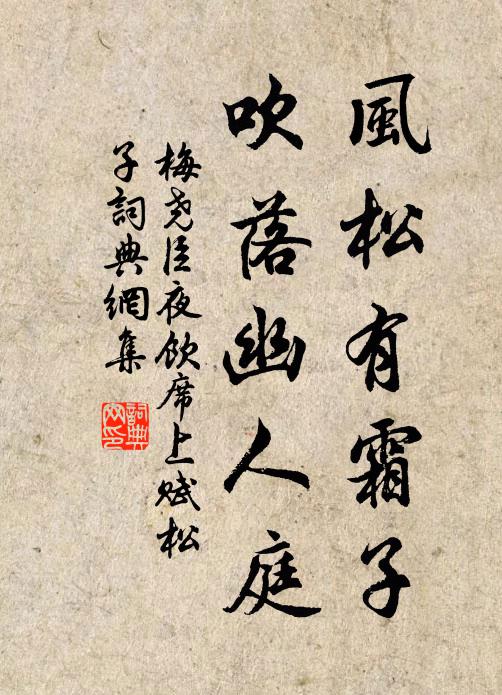 風松有霜子
吹落幽人庭
梅尧臣夜飲席上賦松
子詞典網集
詞典
网印